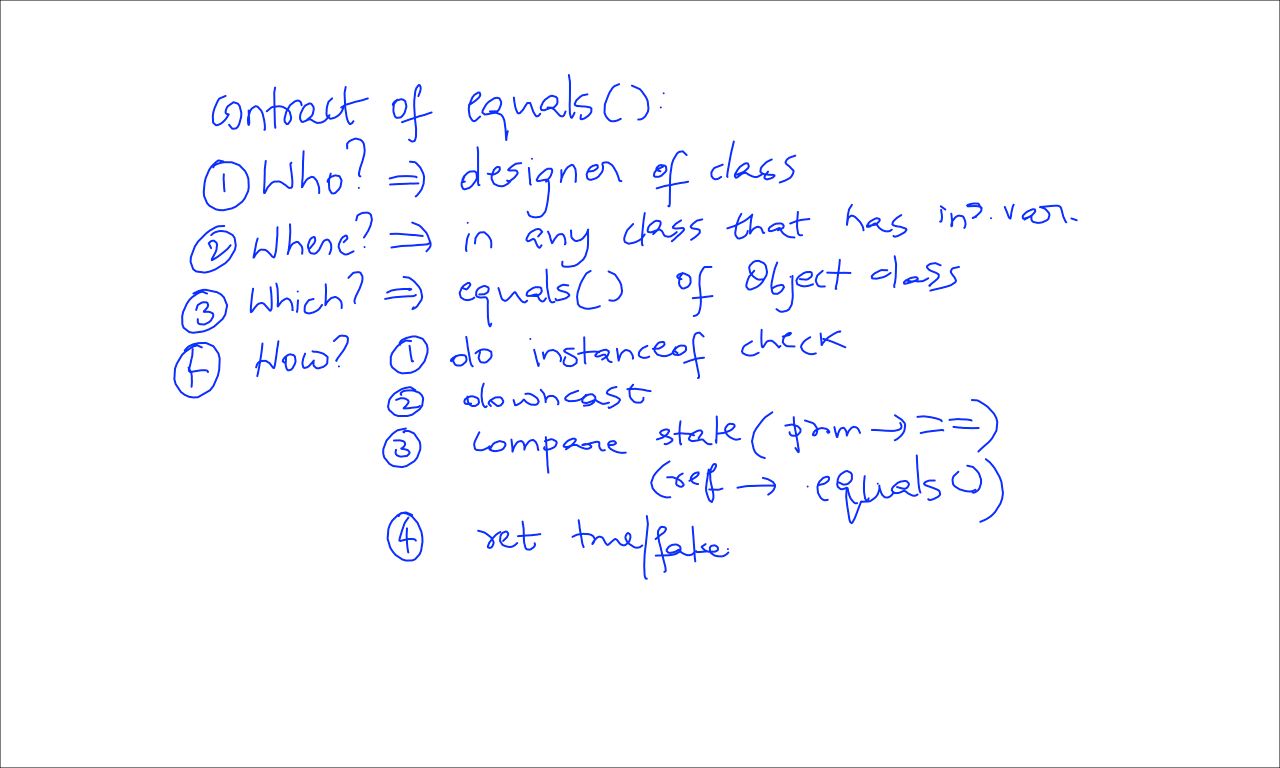 contract of equals():
① Who? ⇒ designer of class
② Where? ⇒ in any class that has ins. var.
③ Which? ⇒ equals() of Object class
④ How? ① do instanceof check
② downcast
③ compare state (prim → ==)
(ref → equals())
④ ret true/false